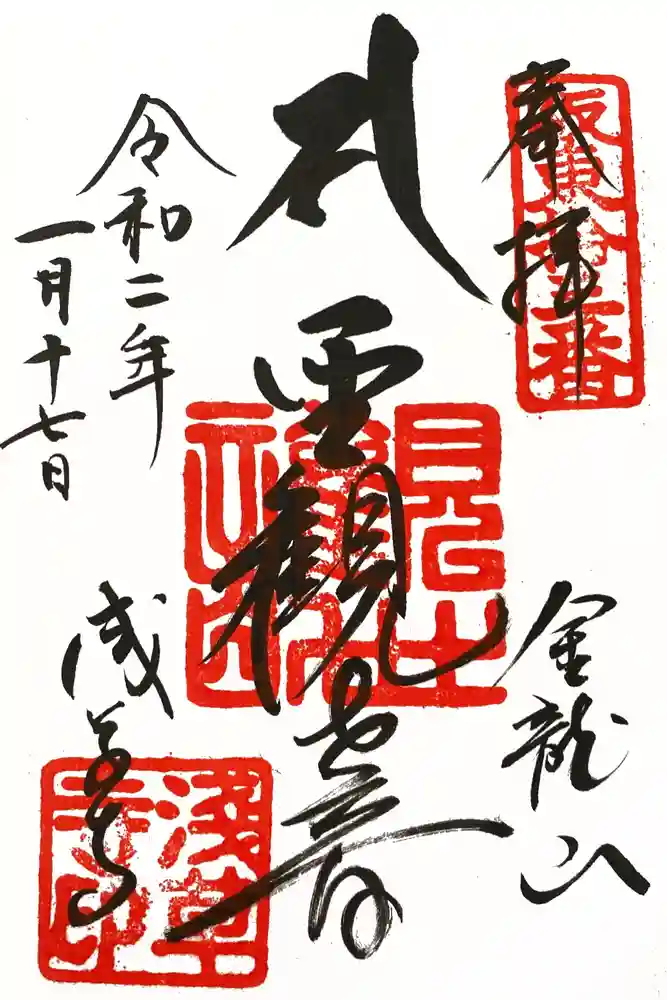 奉拝
坂東拾三番
聖観世音
金龍山
令和二年
一月十七日
浅草寺
淺草寺印